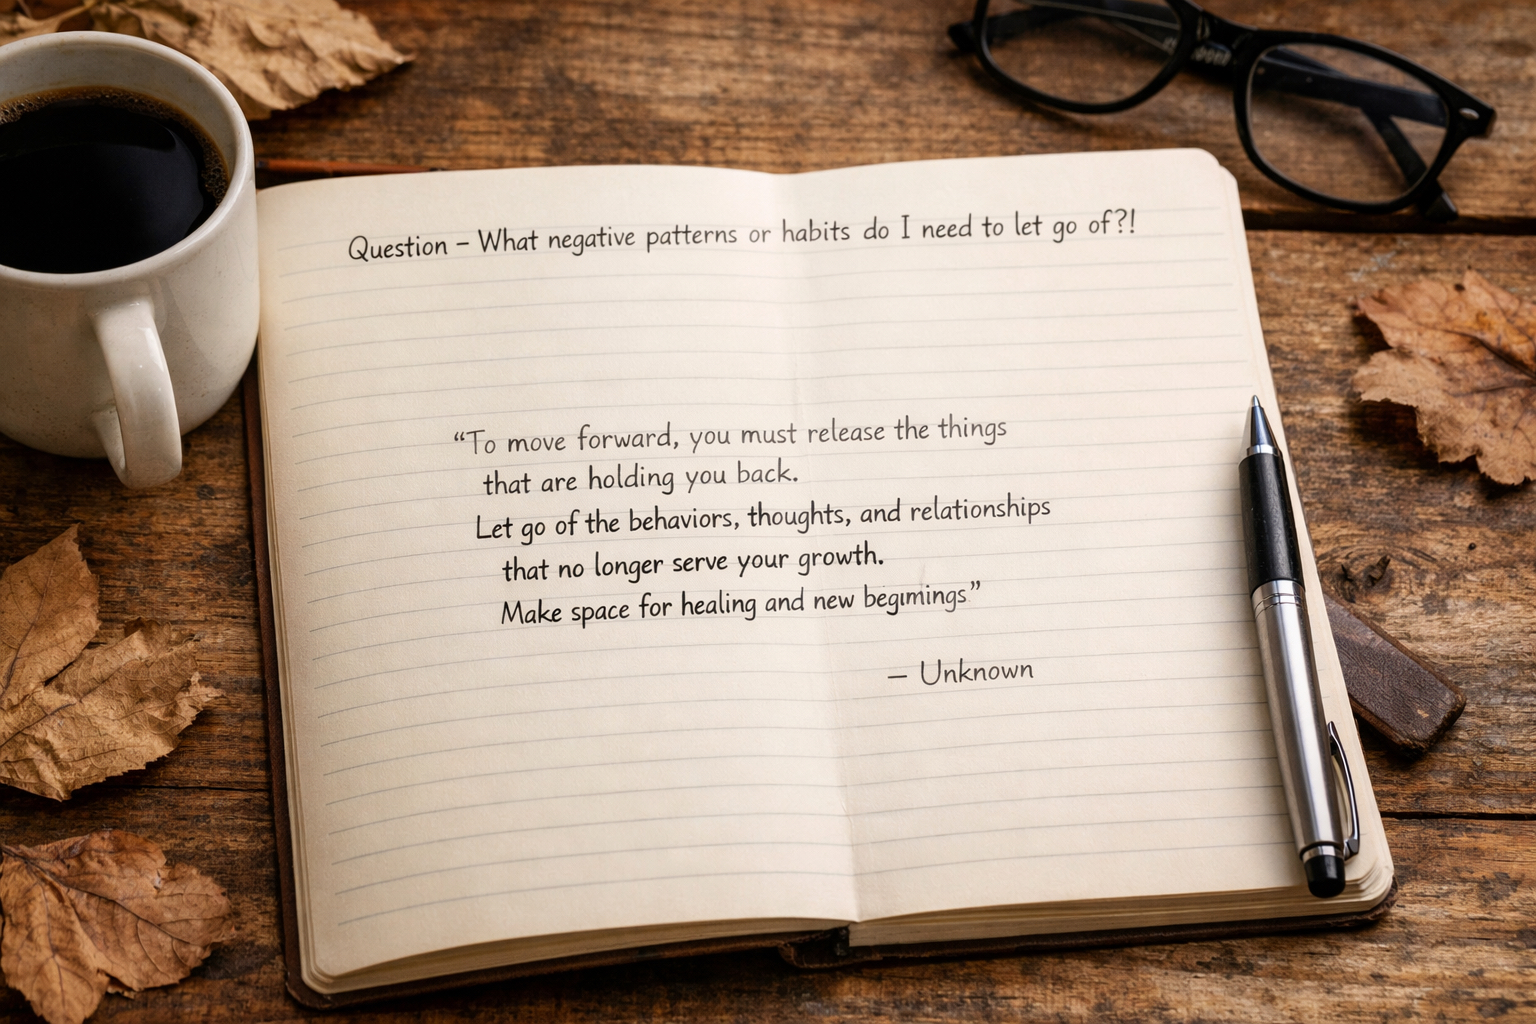 Question – What negative patterns or habits do I need to let go of?!
“To move forward, you must release the things
that are holding you back.
Let go of the behaviors, thoughts, and relationships
that no longer serve your growth.
Make space for healing and new begimings”
– Unknown